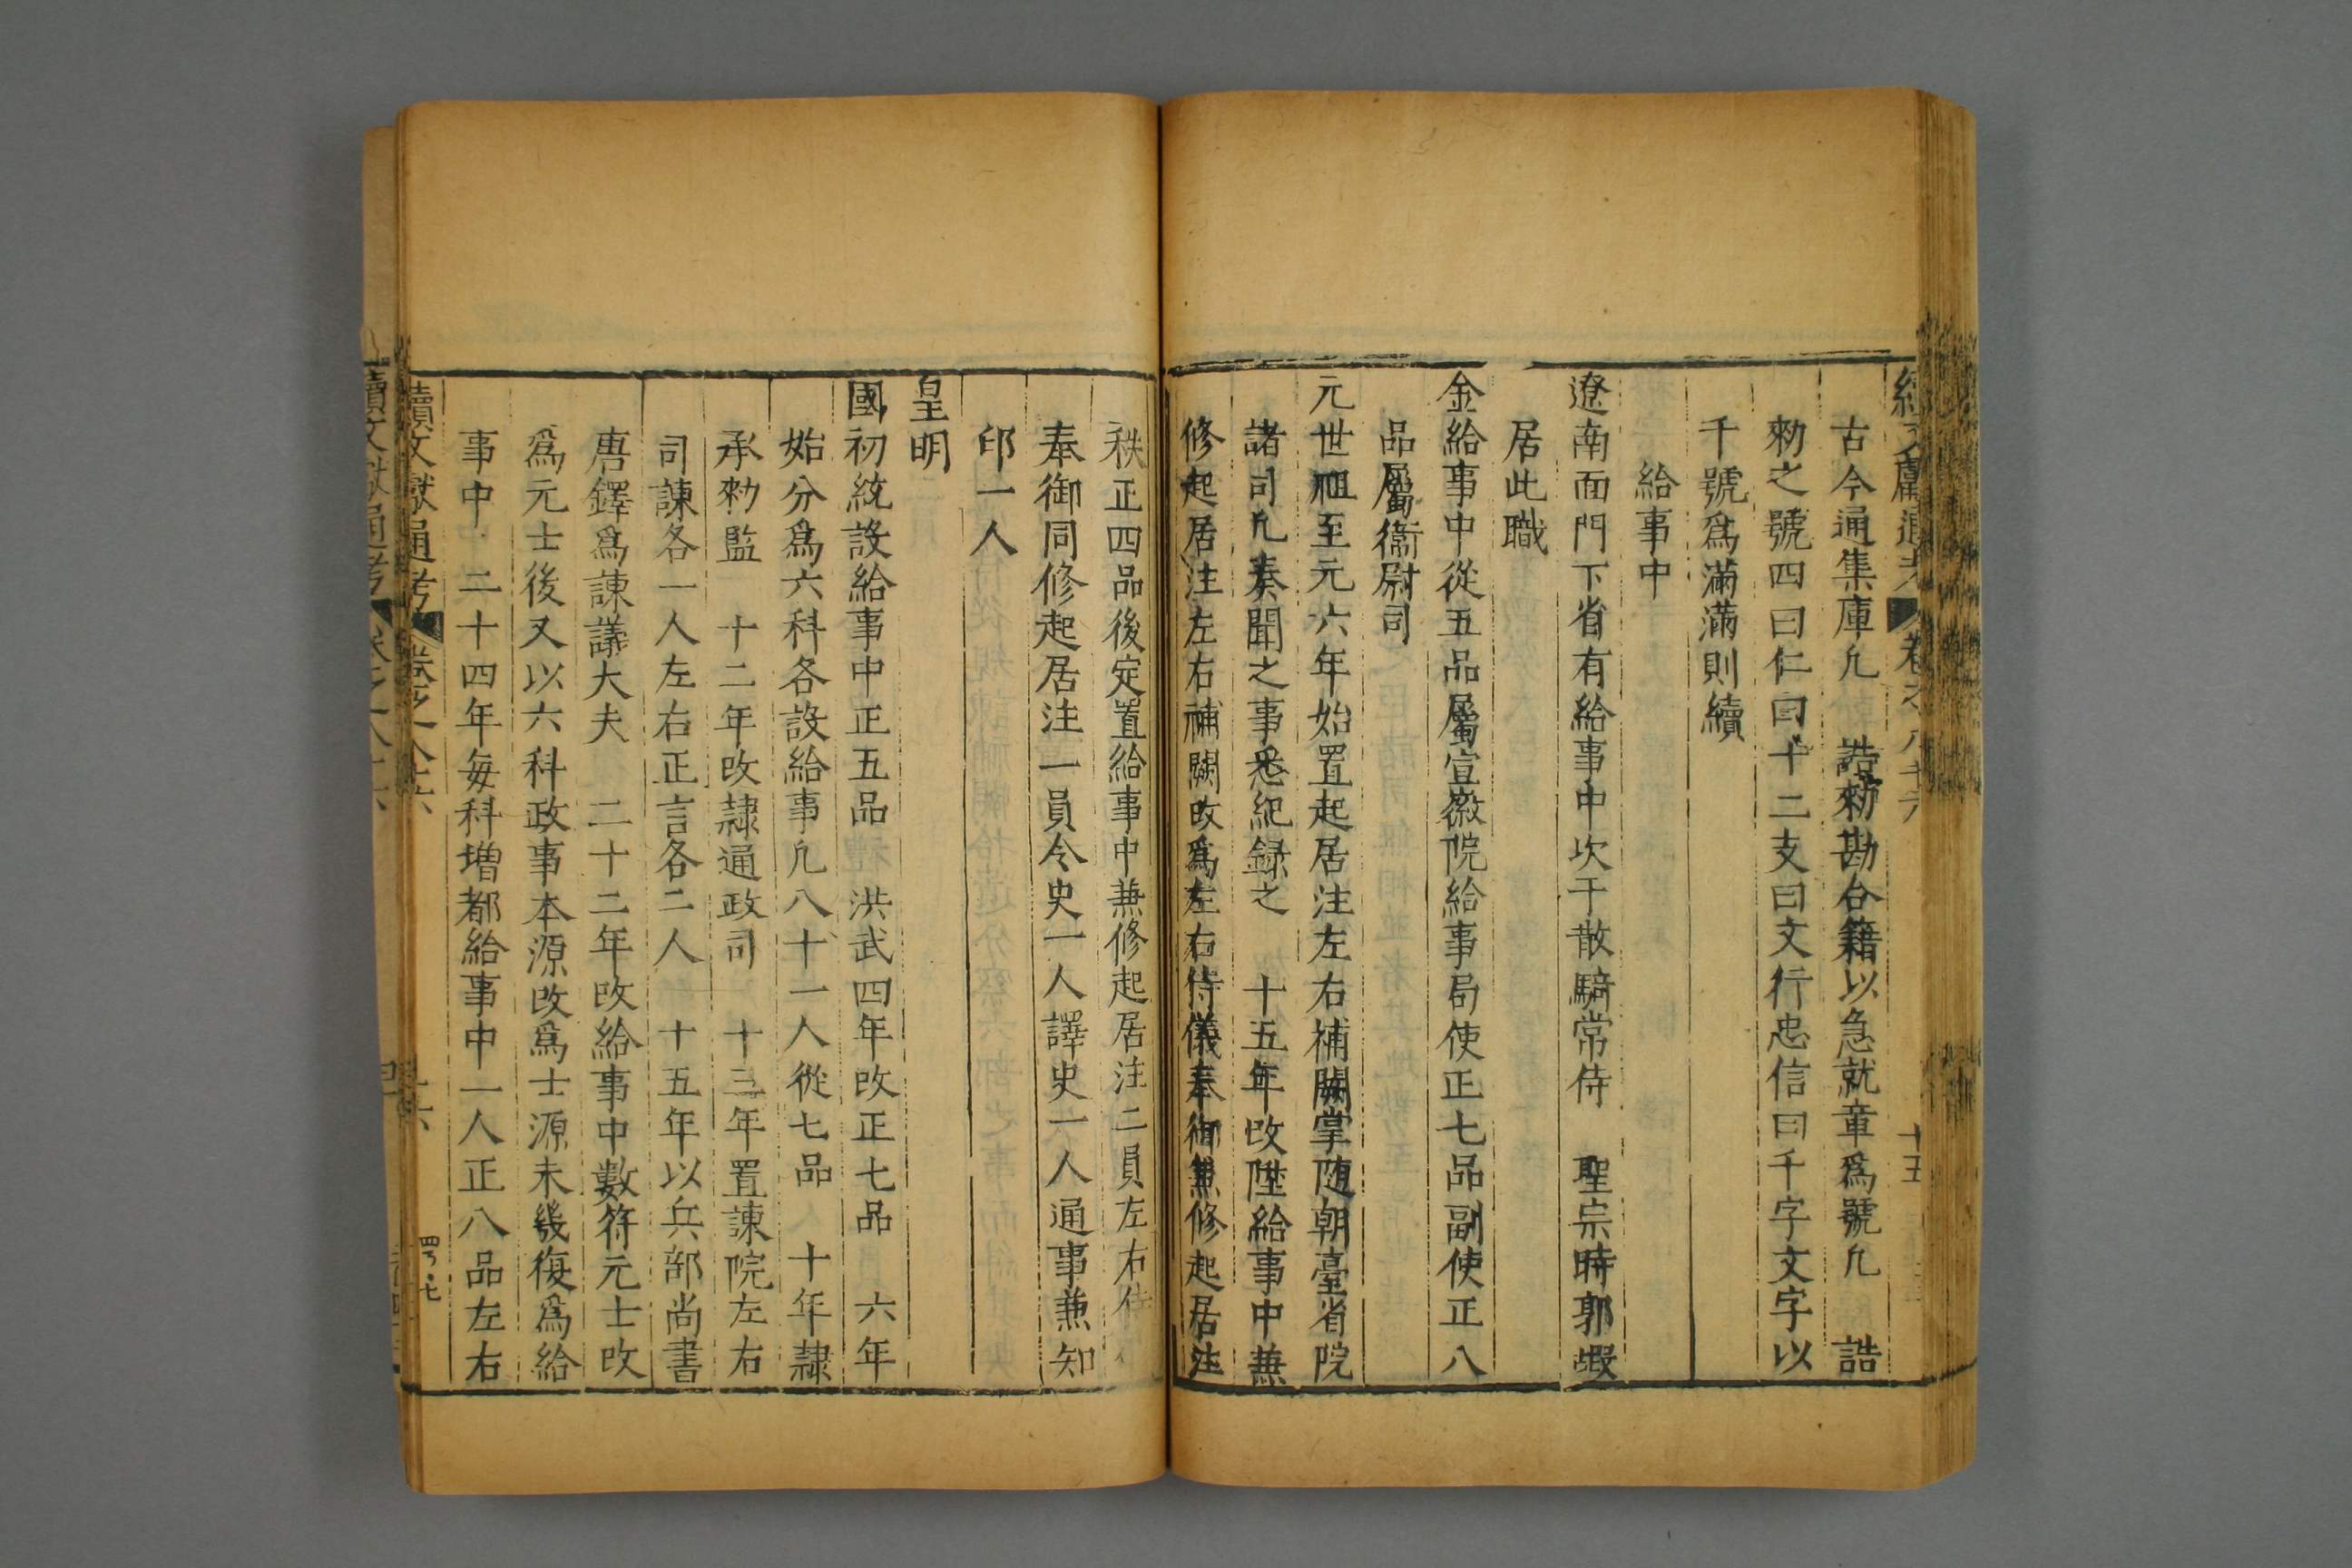 續文獻通考 卷之八十六 十五
古今通集庫凡 誥勑勘合籍以急就章爲號凡 誥
勑之號四曰仁曰十二支曰文行忠信曰千字文字以
千號爲滿滿則續
給事中
遼南面門下省有給事中次于散騎常侍 聖宗時郭
居此職
金給事中從五品屬宣徽院給事局使正七品副使正八
品屬衞尉司
元世祖至元六年始置起居注左右補闕掌随朝臺省院
諸司凡奏聞之事悉紀録之 十五年改陞給事中兼
修起居注左右補闕改爲左右侍儀奉御兼修起居注
秩正四品後定置給事中兼修起居注二員左右侍
奉御同修起居注一員令史一人譯史一人通事兼知
印一人
皇明
國初統設給事中正五品 洪武四年改正七品 六年
始分爲六科各設給事凡八十一人從七品 十年隸
承勑監 十二年改隸通政司 十三年置諫院左右
司諫各一人左右正言各二人 十五年以兵部尚書
唐鐸爲諫議大夫 二十二年改給事中數符元士改
爲元士後又以六科政事本源改爲士源未幾復爲給
事中 二十四年每科增都給事中一人正八品左右
續文獻通考 卷之八十六
續文獻通考